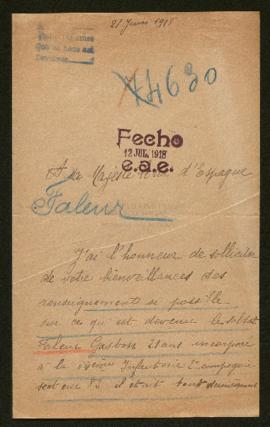 21 Juin 1918
14630
Fecho
12 JUL. 1918
e.a.e.
A Sa Majesté d'Espagne
Faleur
J'ai l'honneur de solliciter
de votre bienveillances des
renseignements si possible
sur ce qui est devenu le soldat
Faleur Gaston 21 ans incorporé
à la Infanterie 2e compagnie
il était